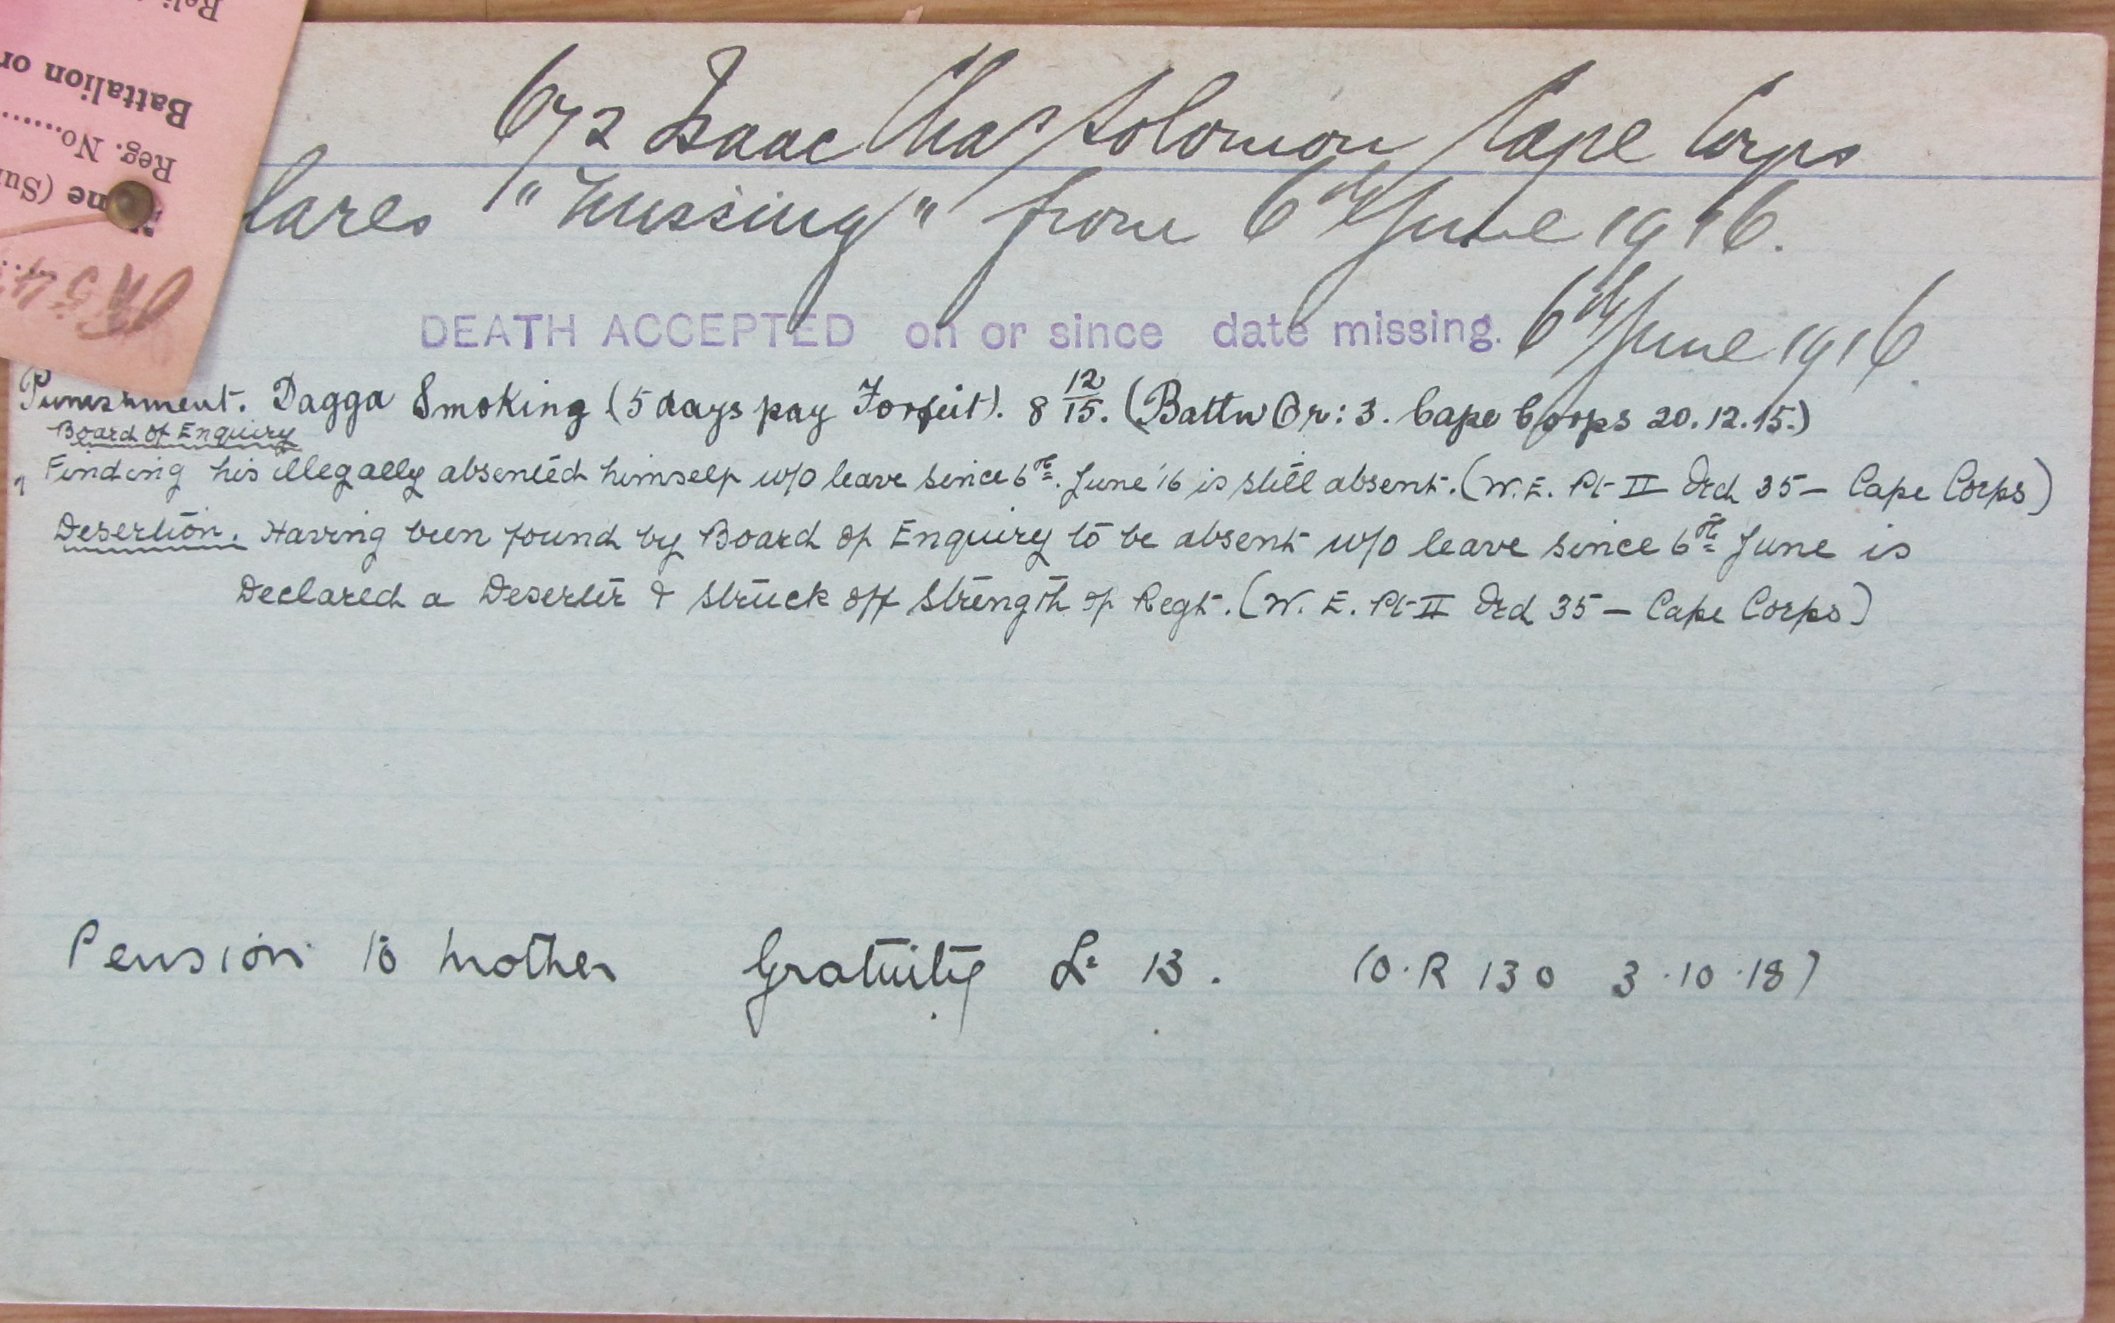 Battalion or
Reg. No.......
672 Isaac Chas Solomon Cape Corps
lares "missing" from 6th June 1916.
DEATH ACCEPTED on or since date missing. 6th June 1916.
Punishment. Dagga Smoking (5 days pay Forfeit). 8 12/15. (Battn Or: 3. Cape Corps 20.12.15.)
Board of Enquiry
Finding his illegally absented himself w/o leave since 6th. June '16 is still absent. (W.E. Pt II Ord 35 — Cape Corps)
Desertion. Having been found by Board of Enquiry to be absent w/o leave since 6th June is
Declared a Deserter & struck off strength of Regt. (W. E. Pt II Ord 35 — Cape Corps)
Pension to mother Gratuity £ 13. (O.R 130 3.10.18)